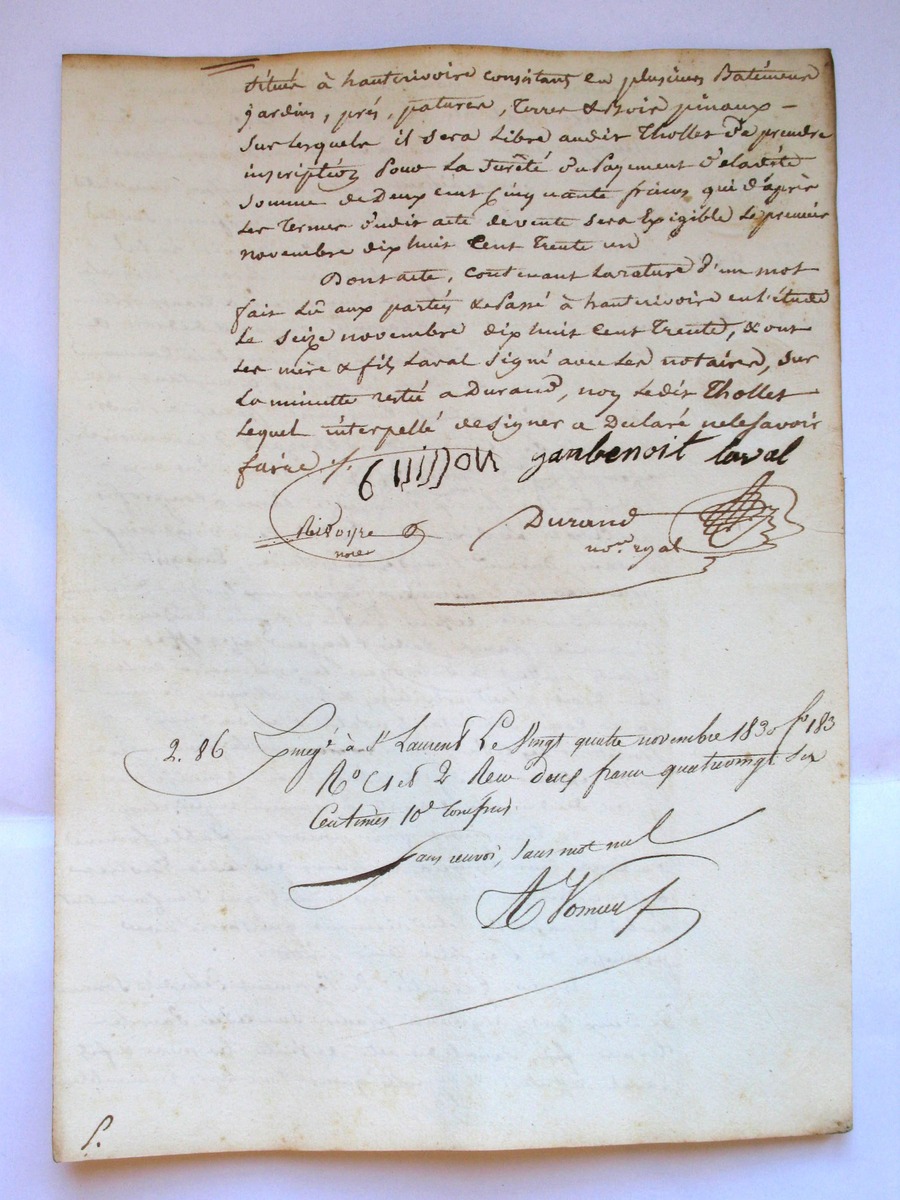 situés à hauterivoire consistant en plusieurs Batiments
jardins, prés, patures, Terres & bois pinaux –
sur lesquels il sera Libre audit Thollet de prendre
inscription Pour La sureté du Payement de ladite
somme de Deux cent Cinquante francs qui d'après
Les Termes dudit acte de vente sera Exigible Le premier
novembre dix huit Cent Trente un
Dont acte, contenant la rature d'un mot
fait Lû aux parties & Passé à hauterivoire en l'étude
Le seize novembre dix huit Cent Trente, & ont
Les mère & fils Laval signé avec Les notaires, sur
La minutte restée a Durand, non Ledit Thollet
Lequel interpellé de signer a Déclaré ne le savoir
faire ./.
janbenoit laval
Durand
nore
nore royal
2. 86 Enregé à St Laurent Le Vingt quatre novembre 1830 fo 183
Ro C1 et 2 Reçu deux francs quatrevingt six
Centimes 10e Compris.
sans renvoi, sans mot nul